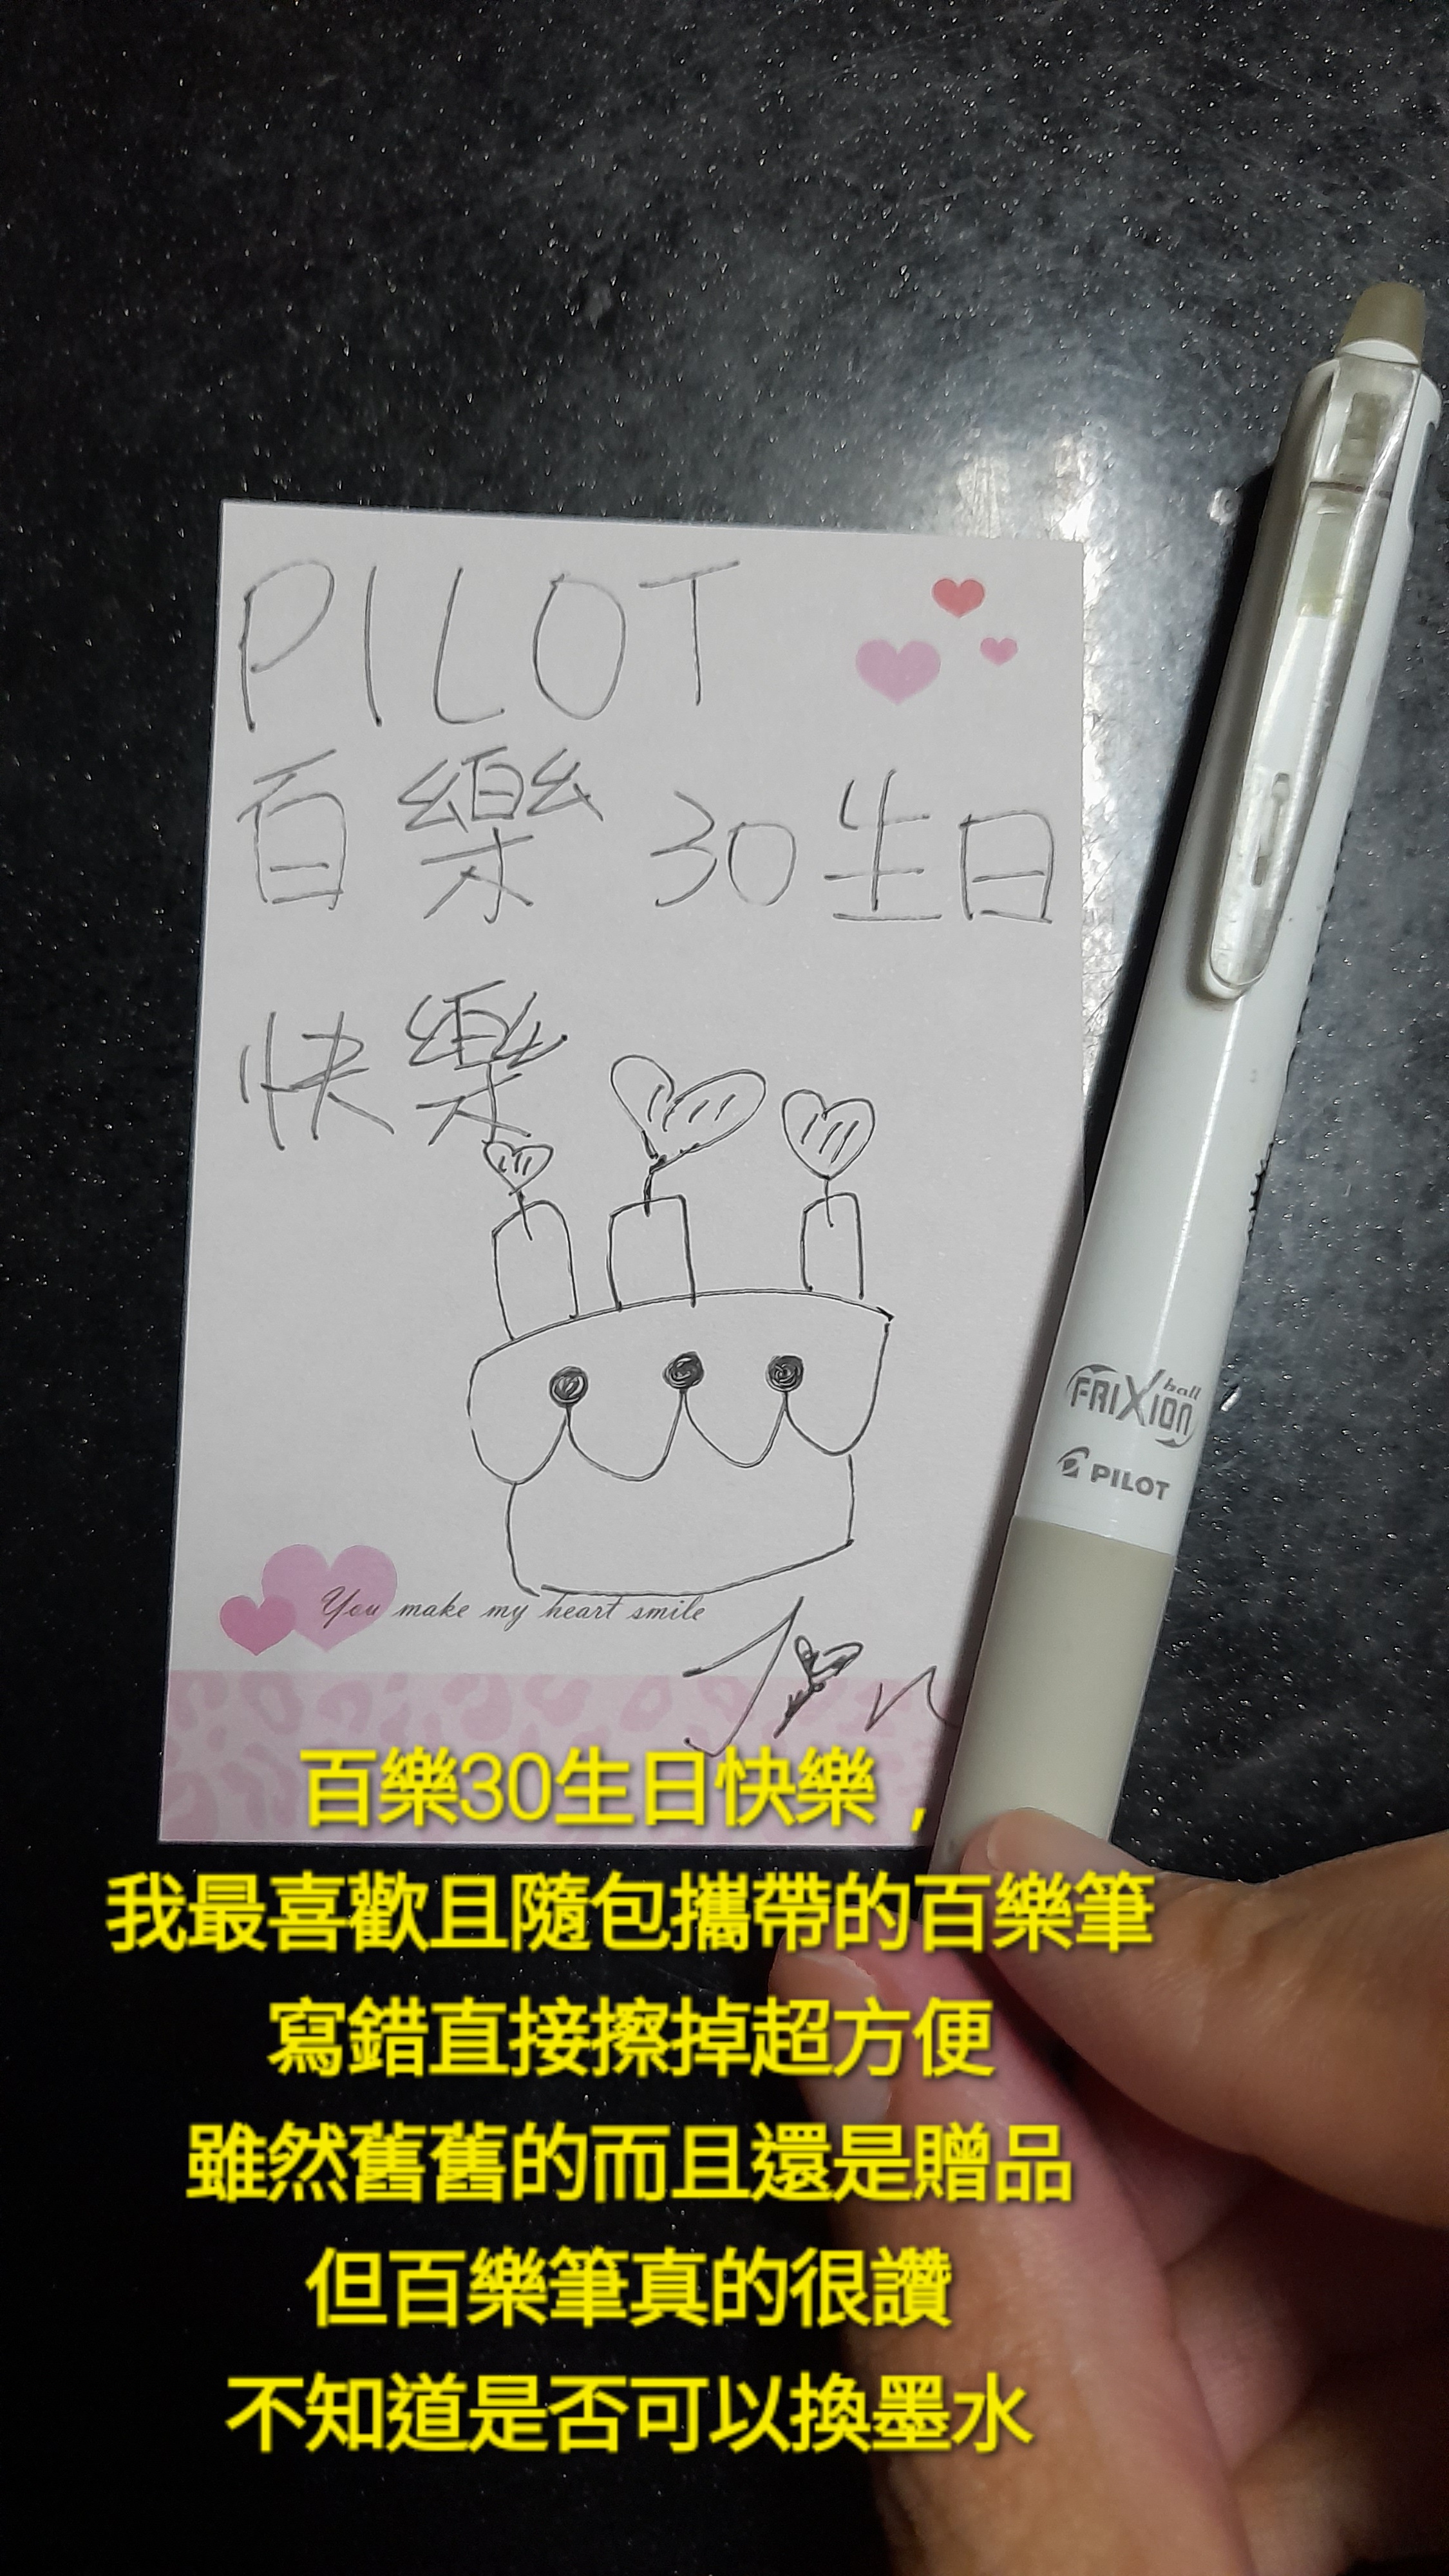 PILOT
百樂 30生日
快樂
You make my heart smile
FRIXION ball
PILOT
百樂30生日快樂，
我最喜歡且隨包攜帶的百樂筆
寫錯直接擦掉超方便
雖然舊舊的而且還是贈品
但百樂筆真的很讚
不知道是否可以換墨水